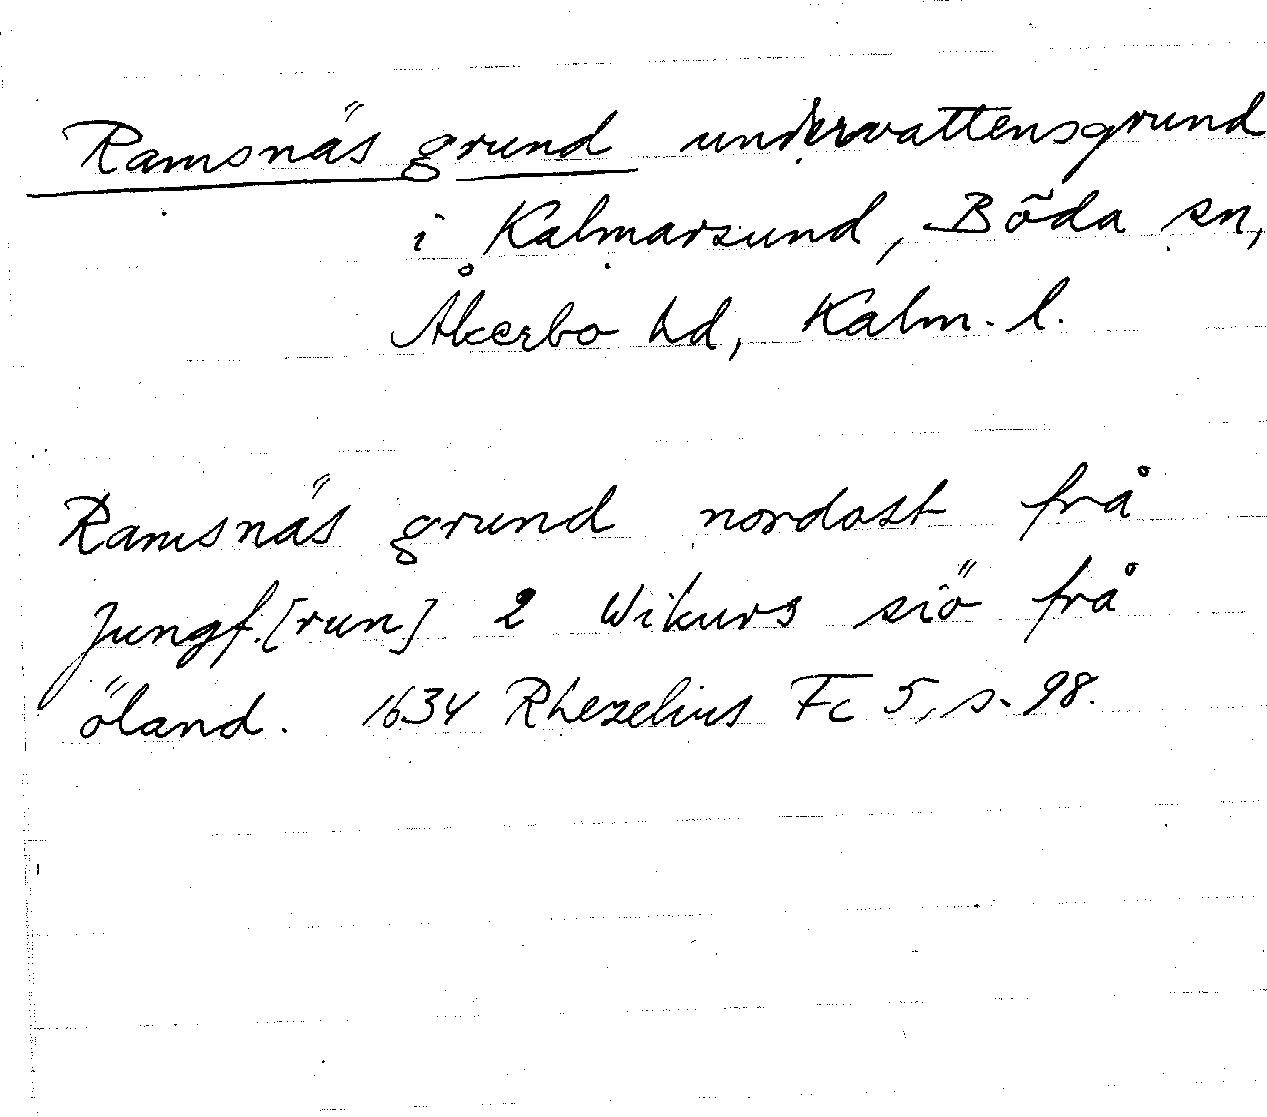 Ramsnäs grund undervattensgrund
i Kalmarsund, Böda sn,
Åkerbo hd, Kalm. l.
Ramsnäs grund nordost frå
Jungf.[run] 2 Wikurs siö frå
öland. 1634 Rhezelius Fc 5, s. 98.